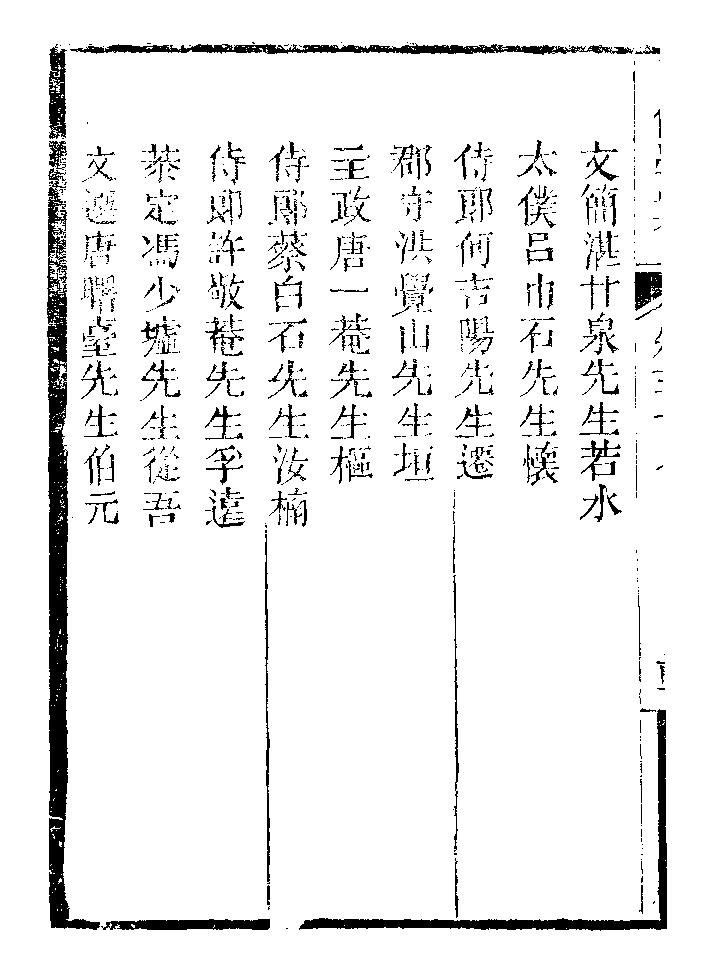 文簡湛甘泉先生若水
太僕呂巾石先生懷
侍郎何吉陽先生遷
郡守洪覺山先生垣
主政唐一菴先生樞
侍郎蔡白石先生汝楠
侍郎許敬菴先生孚遠
恭定馮少墟先生從吾
文選唐曙臺先生伯元